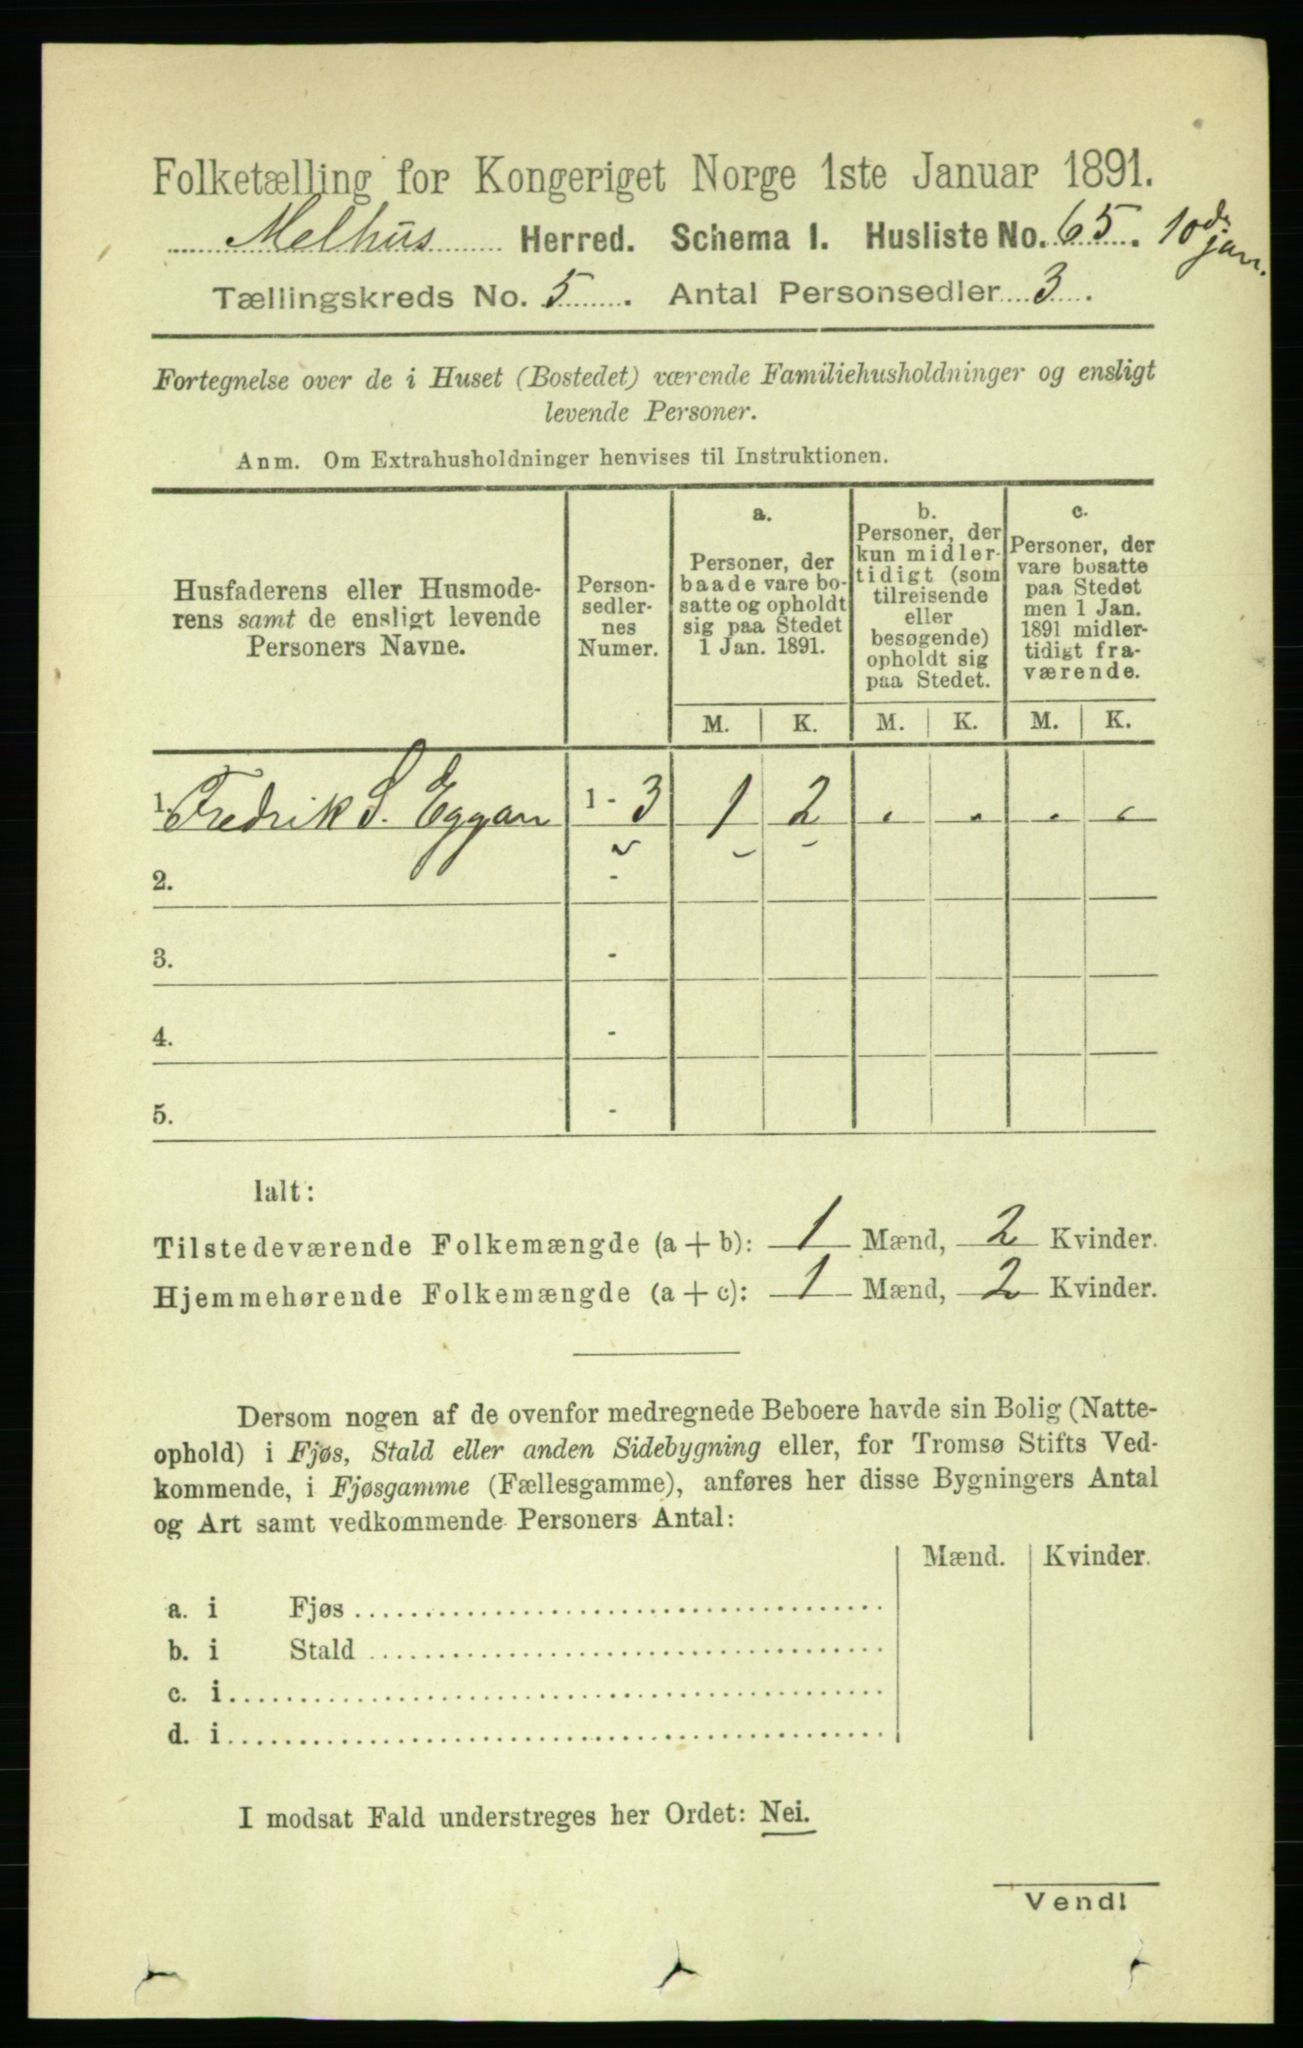 Folketælling for Kongeriget Norge 1ste Januar 1891.
Melhus Herred. Schema I. Husliste No. 65. 10de jan.
Tællingskreds No. 5. Antal Personsedler 3.
Fortegnelse over de i Huset (Bostedet) værende Familiehusholdninger og ensligt
levende Personer.
Anm. Om Extrahusholdninger henvises til Instruktionen.
Husfaderens eller Husmode-
rens samt de ensligt levende
Personers Navne.
Person-
sedler-
nes
Numer.
a.
Personer, der
baade vare bo-
satte og opholdt
sig paa Stedet
1 Jan. 1891.
b.
Personer, der
kun midler-
tidigt (som
tilreisende
eller
besøgende)
opholdt sig
paa Stedet.
c.
Personer, der
vare bosatte
paa Stedet
men 1 Jan.
1891 midler-
tidigt fra-
værende.
M. K. M. K. M. K.
1. Fredrik S. Eggan 1 - 3 1 2 . . . .
2. -
3. -
4. -
5. -
Ialt:
Tilstedeværende Folkemængde (a + b): 1 Mænd, 2 Kvinder.
Hjemmehørende Folkemængde (a + c): 1 Mænd, 2 Kvinder.
Dersom nogen af de ovenfor medregnede Beboere havde sin Bolig (Natte-
ophold) i Fjøs, Stald eller anden Sidebygning eller, for Tromsø Stifts Ved-
kommende, i Fjøsgamme (Fællesgamme), anføres her disse Bygningers Antal
og Art samt vedkommende Personers Antal:
Mænd. Kvinder.
a. i Fjøs
b. i Stald
c. i
d. i
I modsat Fald understreges her Ordet: Nei.
Vend!